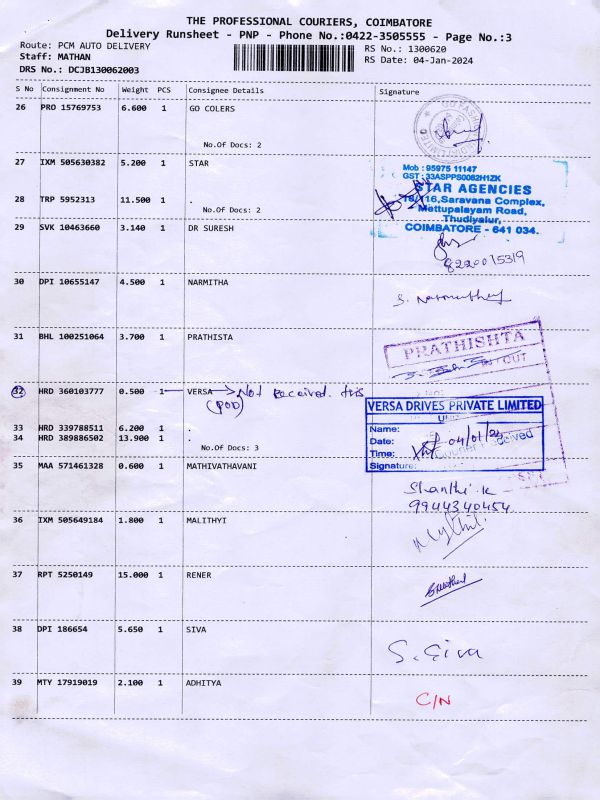 THE PROFESSIONAL COURIERS, COIMBATORE
Delivery Runsheet - PNP - Phone No.:0422-3505555 - Page No.:3
Route: PCM AUTO DELIVERY
RS No.: 1300620
Staff: MATHAN
RS Date: 04-Jan-2024
DRS No.: DCJB130062003
S No Consignment No Weight PCS Consignee Details Signature
26 PRO 15769753 6.600 1 GO COLERS
No.Of Docs: 2
27 IXM 505630382 5.200 1 STAR
Mob : 95975 11147
GST : 33ASPPS0082H1ZK
STAR AGENCIES
16/116,Saravana Complex,
Mettupalayam Road,
Thudiyalur,
COIMBATORE - 641 034.
28 TRP 5952313 11.500 1 .
No.Of Docs: 2
29 SVK 10463660 3.140 1 DR SURESH
8220015319
30 DPI 10655147 4.500 1 NARMITHA
31 BHL 100251064 3.700 1 PRATHISTA
PRATHISHTA
IN / OUT
32 HRD 360103777 0.500 1 VERSA Not Received this
(POD)
VERSA DRIVES PRIVATE LIMITED
Name:
Date: 04/01/24
Time: Courier Received
Signature:
33 HRD 339788511 6.200 1 .
34 HRD 389886502 13.900 1 .
No.Of Docs: 3
35 MAA 571461328 0.600 1 MATHIVATHAVANI
Shanthi.K
9944340454
36 IXM 505649184 1.800 1 MALITHYI
37 RPT 5250149 15.000 1 RENER
38 DPI 186654 5.650 1 SIVA
S. Siva
39 MTY 17919019 2.100 1 ADHITYA
C/N